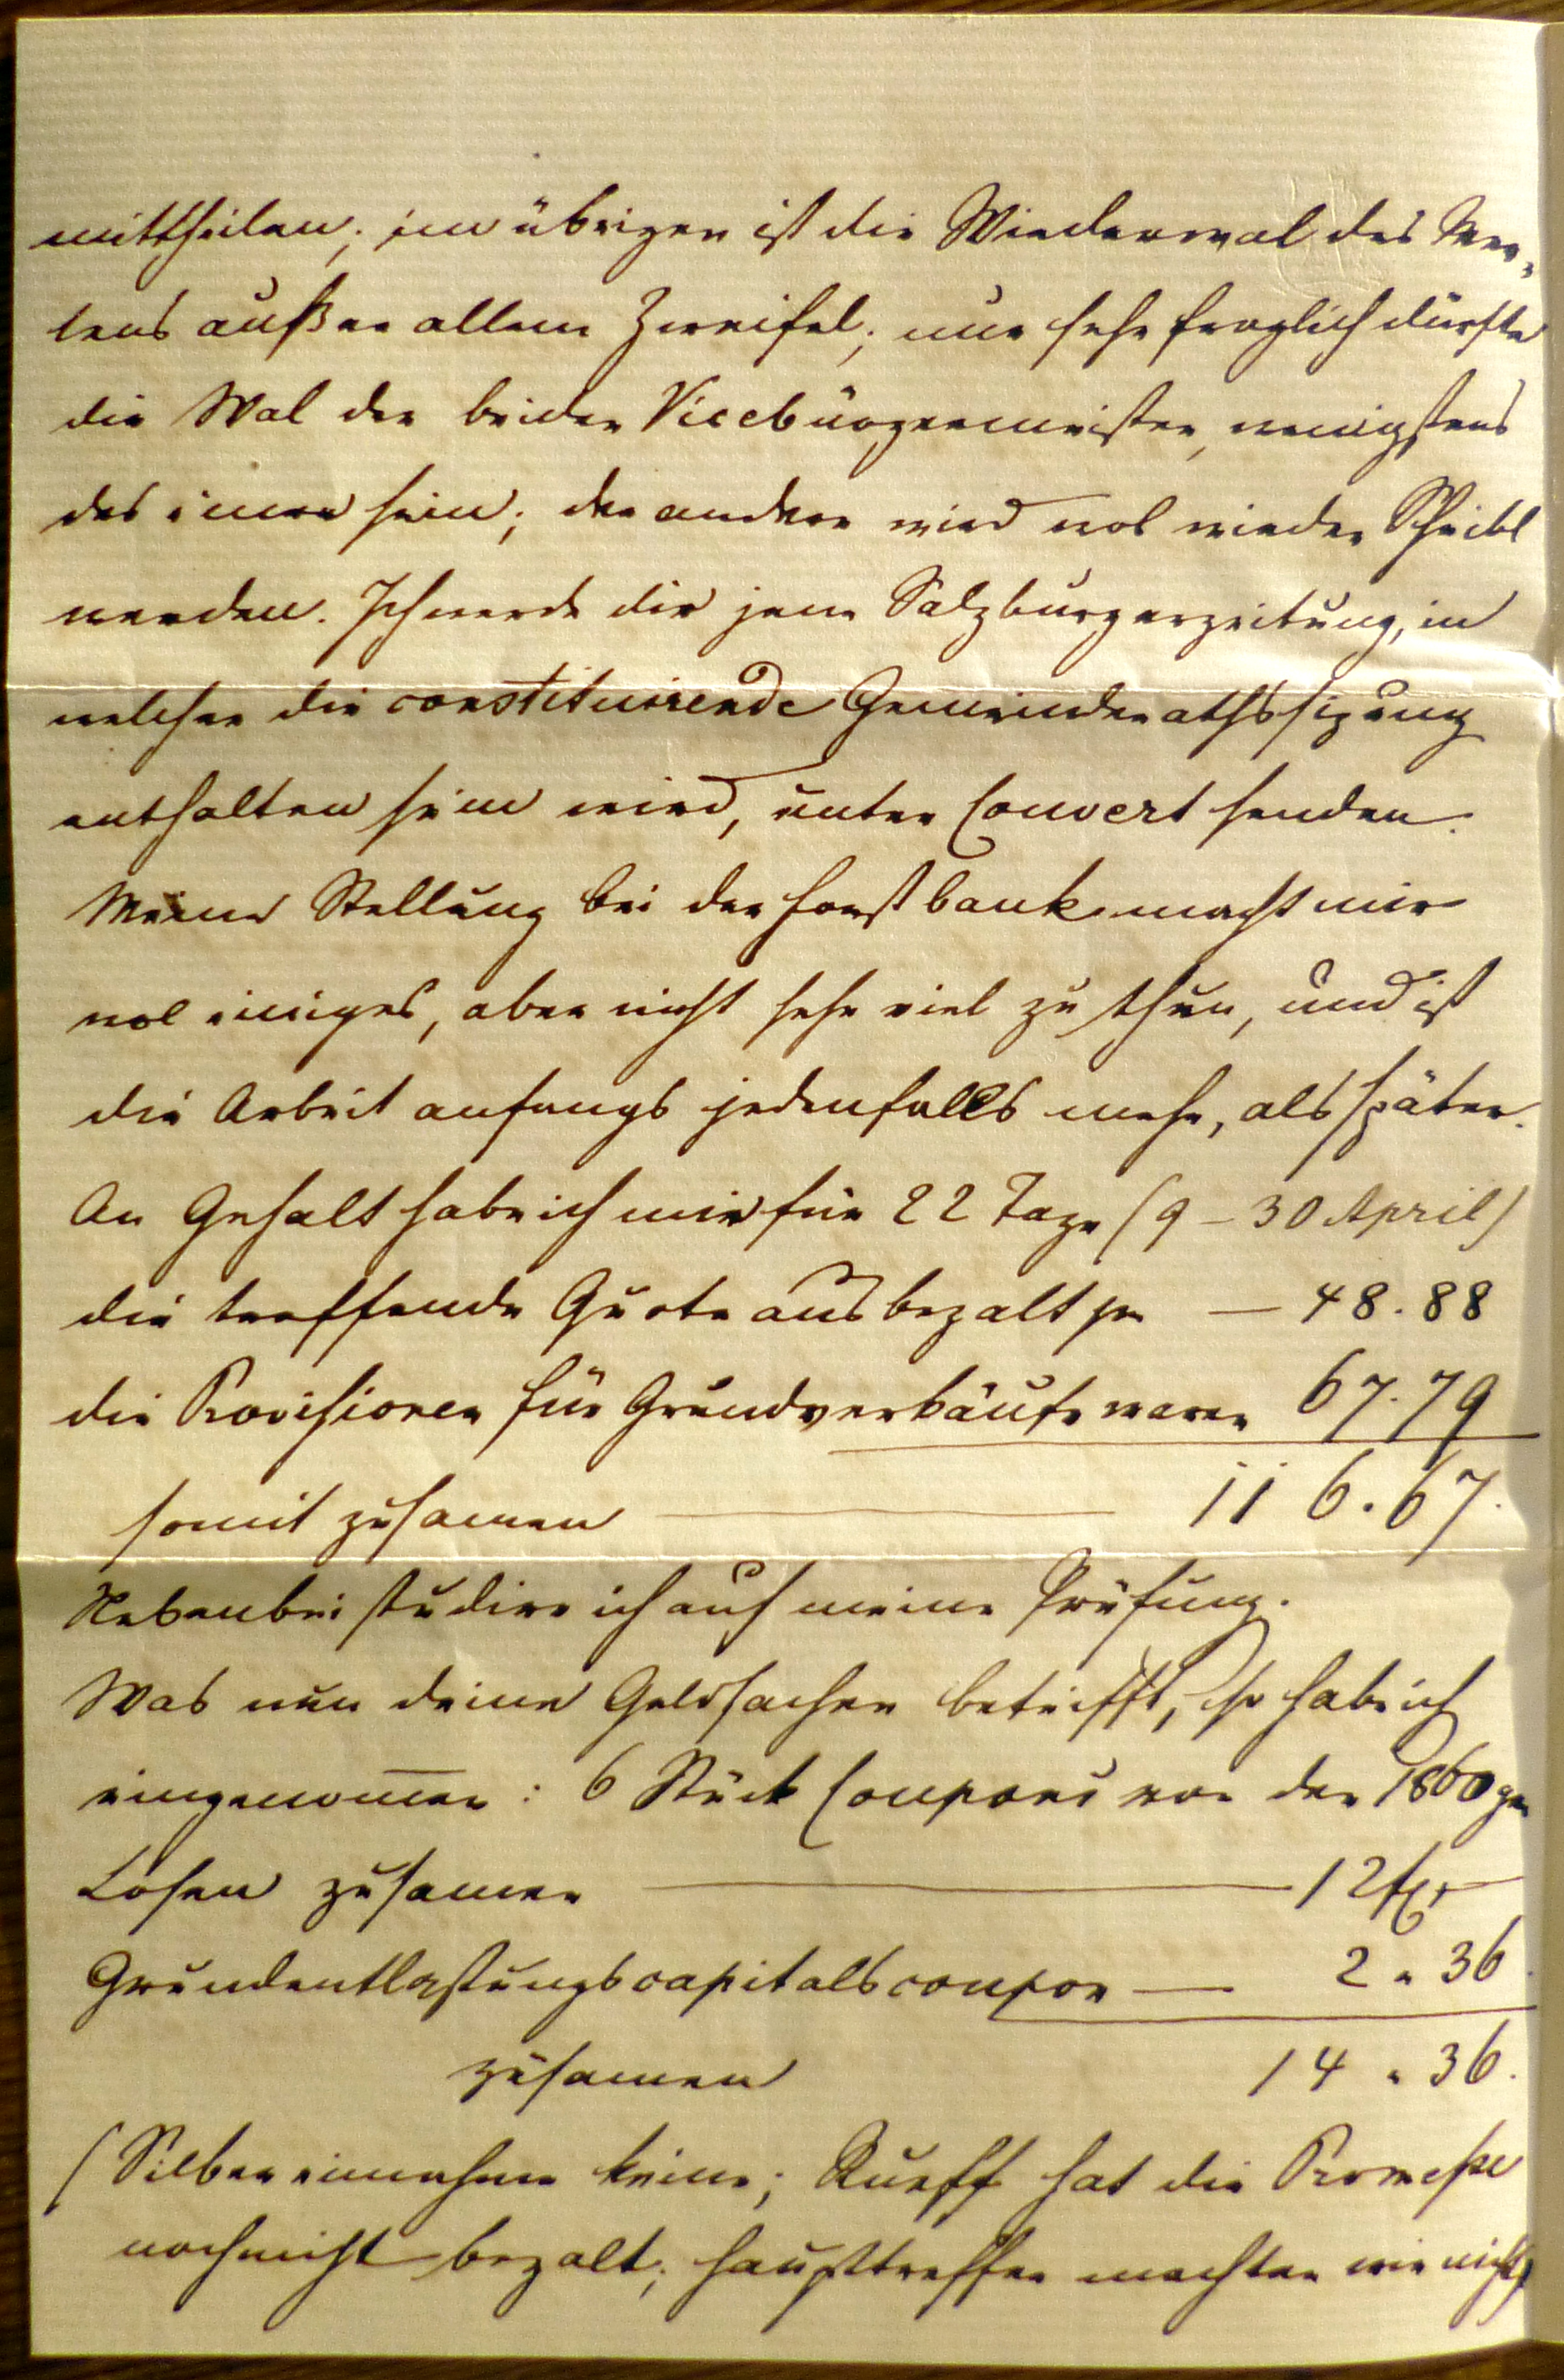 mittheilen; im übrigen ist die Wiederwal des
außer allem Zweifel; nur sehr fraglich dürfte
die Wal der beiden Vicebürgermeister, wenigstens
des einen sein; der andere wird wol wieder Scheibl
werden. Ich werde dir jene Salzburgerzeitung, in
welcher die constituirende Gemeinderathssizung
enthalten sein wird, unter Couvert senden.
Meine Stellung bei der Forstbank macht mir
wol einiges, aber nicht sehr viel zu thun, und ist
die Arbeit anfangs jedenfalls mehr, als später.
An Gehalt habe ich mir für 22 Tage (9 – 30 April)
die treffende Quote ausbezalt pr — 48.88
die Provisionen für Grundverkäufe waren 67.79
somit zusamen — 116.67.
Nebenbei studire ich auf meine Prüfung.
Was nun deine Geldsachen betrifft, so habe ich
eingenom̅en: 6 Stück Coupons von den 1860ger
Losen zusamen — 12 fl. —
Grundentlastungscapitalscoupon — 2 " 36.
zusamen 14 " 36.
(Silbereinnahme keine; Rueff hat die Promesse
noch nicht bezalt; Haupttreffer machten wir nicht)